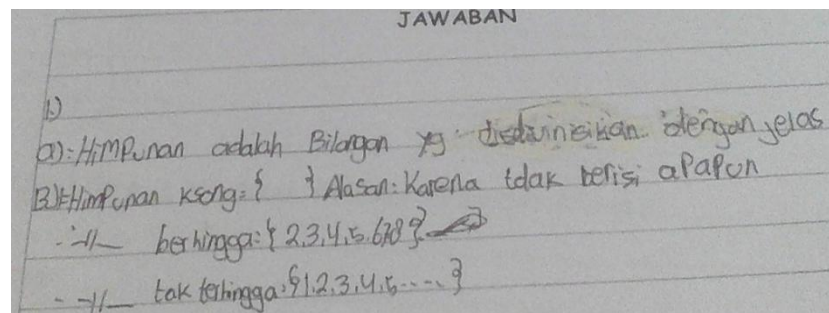 JAWABAN
1.)
a):Himpunan adalah Bilangan yg didevinisikan dengan jelas
B)Himpunan ksong:{ } Alasan: Karena tdak berisi apapun
-"- berhingga:{2,3,4,5.678}
-"- tak terhingga:{1,2,3,4,5....}